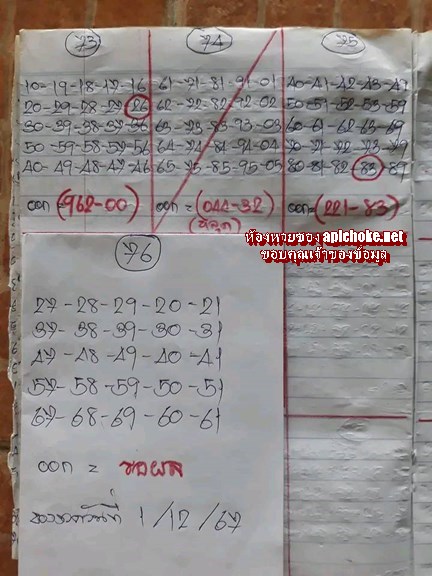 73
10-19-18-17-16
20-29-28-27-26
30-39-38-37-36
50-59-58-57-56
40-49-48-47-46
ออก (962-00)
74
61-71-81-91-01
62-72-82-92-02
63-73-83-93-03
64-74-84-94-04
65-75-85-95-05
ออก = (044-32)
75
40-41-42-43-49
50-51-52-53-59
60-61-62-63-69
70-71-72-73-79
80-81-82-83-89
ออก=(221-83)
ห้องหวยของ apichoke.net
ขอบคุณเจ้าของข้อมูล
76
27-28-29-20-21
37-38-39-30-31
47-48-49-40-41
57-58-59-50-51
67-68-69-60-61
ออก = รอผล
งวดวันที่ 1/12/67